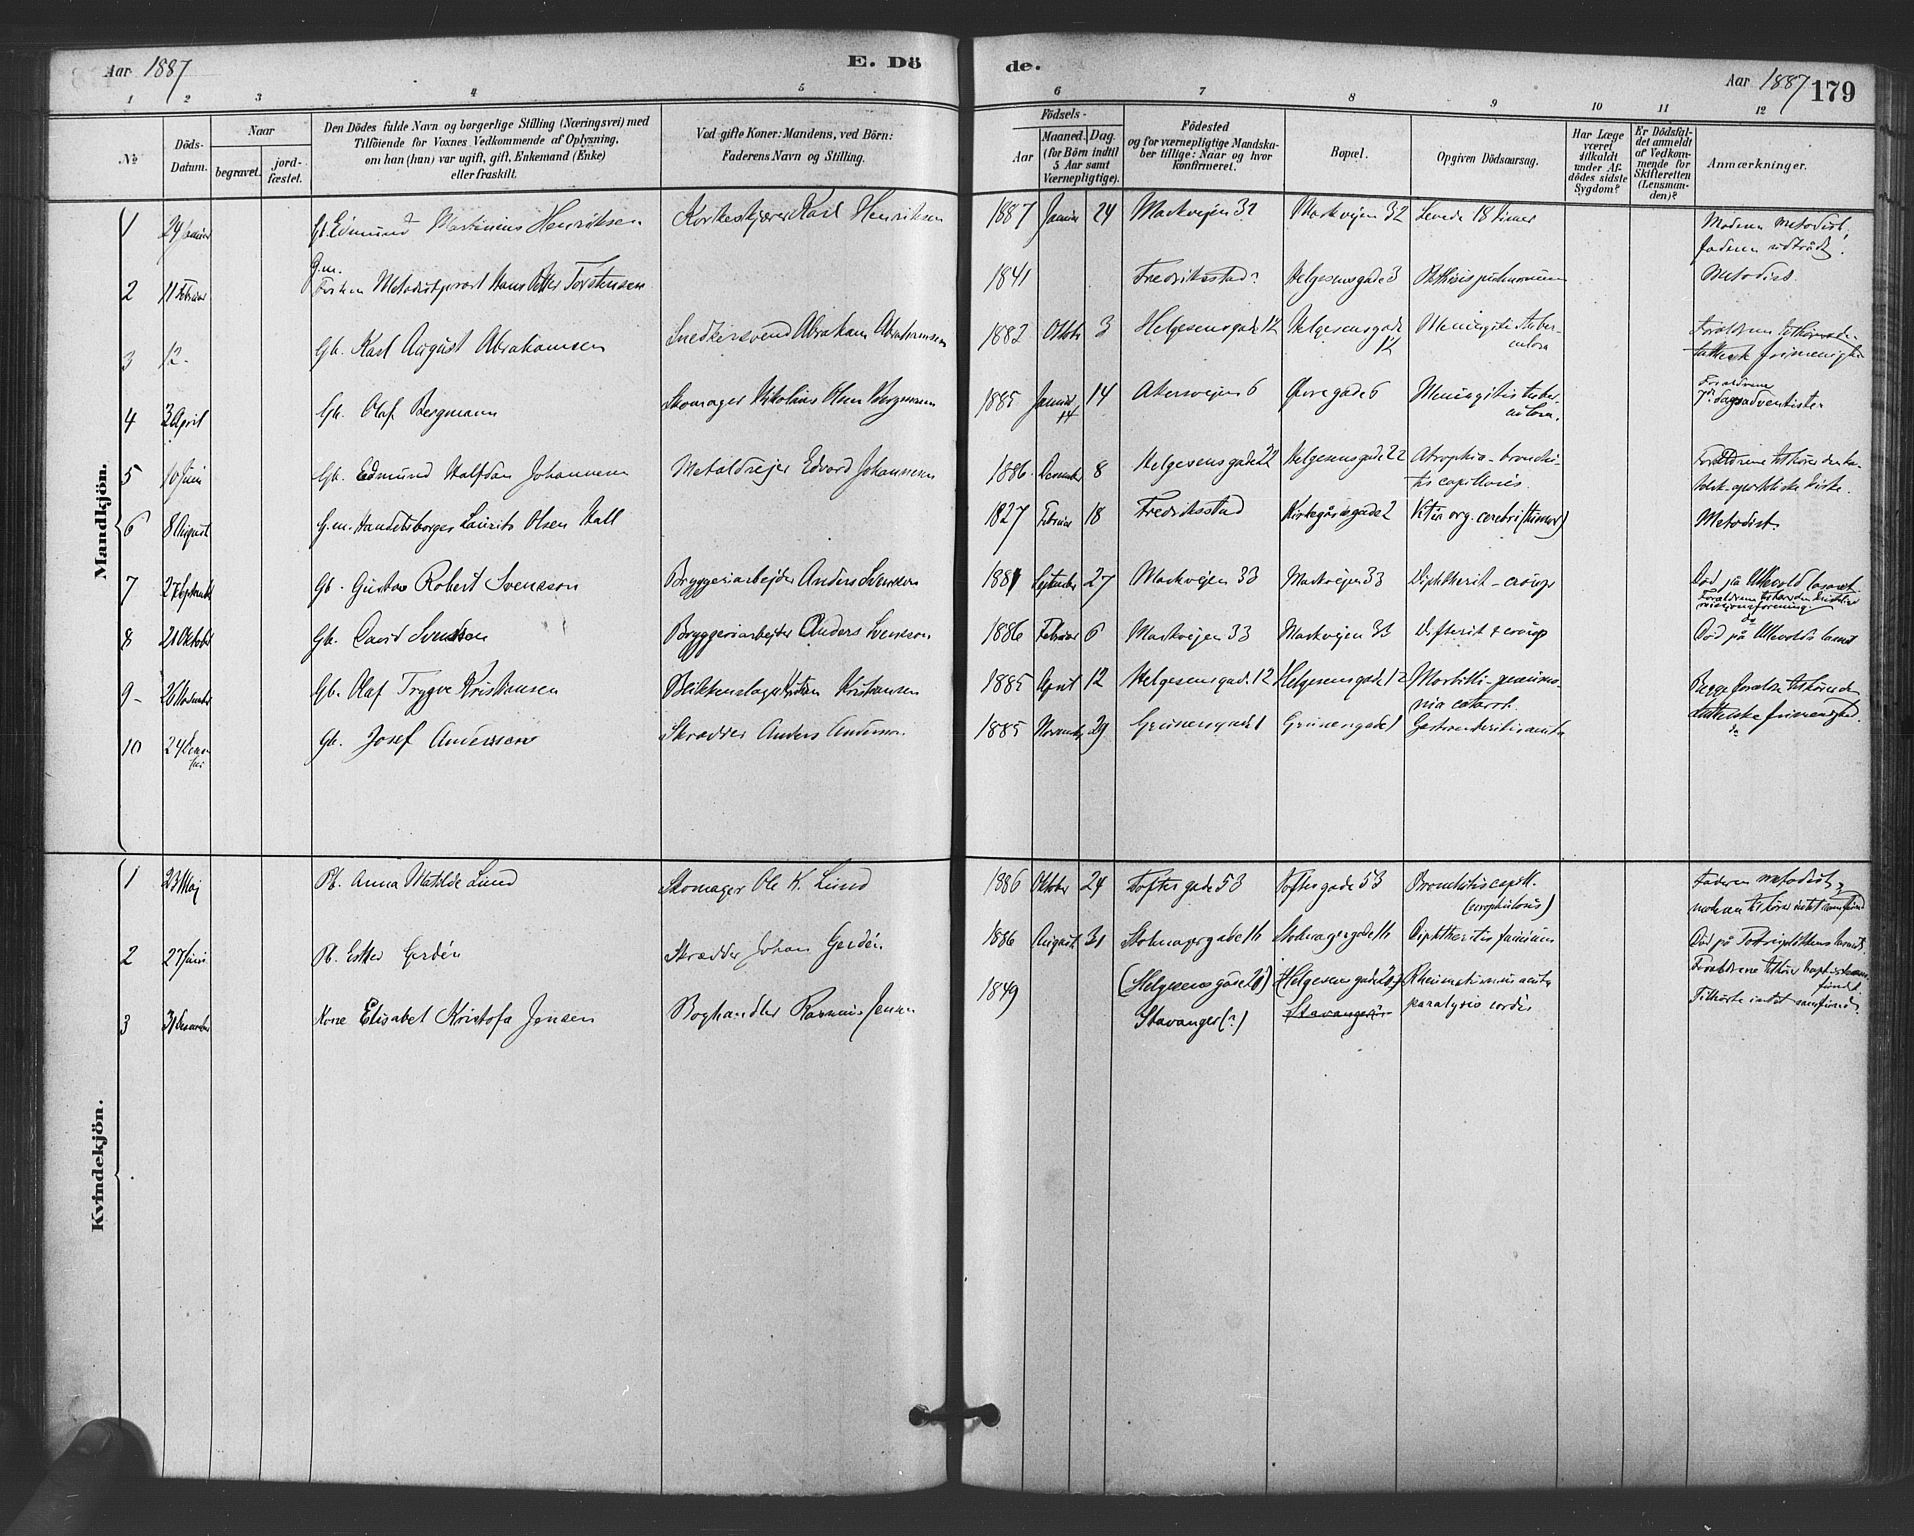 Aar 1887
E. Dö
de.
Aar 1887
179
1 2 3 4 5 6 7 8 9 10 11 12
№
Döds-
Datum.
Naar
begravet.
jord-
fæstet.
Den Dödes fulde Navn og borgerlige Stilling (Næringsvei) med
Tilföiende for Voxnes Vedkommende af Oplysning,
om han (hun) var ugift, gift, Enkemand (Enke)
eller fraskilt.
Ved gifte Koner: Mandens, ved Börn:
Faderens Navn og Stilling.
Födsels-
Aar
Maaned. Dag.
(for Börn indtil
5 Aar samt
Værnepligtige).
Födested
og for værnepligtige Mandska-
ber tillige: Naar og hvor
konfirmeret.
Bopæl.
Opgiven Dödsaarsag.
Har Læge
været
tilkaldt
under Af-
dödes sidste
Sygdom?
Er Dödsfal-
det anmeldt
af Vedkom-
mende for
Skifteretten
(Lensman-
den)?
Anmærkninger.
Mandkjön.
1 24 Januar Gb. Edmund Martinius Henriksen Korkeskjærer Karl Henriksen 1887 Januar 24 Markvejen 32 Markvejen 32 Levede 18 timer Moderen metodist,
faderen udtrådt.
2 11 Februar G.m.
Metodistprest Hans Peter Torstensen 1841 Fredriksstad? Helgesensgade 3 Phthisis pulmonum Metodist.
3 12 - Gb. Karl August Abrahamsen Snedkersvend Abraham Abrahamsen 1882 Oktbr 3 Helgesensgade 12 Helgesensgade
12 Meningitis tuber-
culosa Forældrene tilhører den
lutherske frimenighed
4 3 April Gb. Olaf Bergmann Skomager Nikolaus Olsen Bergmann 1885 Januar
14 14 Akersvejen 6 Øvregade 6 Meningitis tuber-
culosa. Forældrene
7de dagsadventister
5 10 Juni Gb. Edmund Halfdan Johannesen Metaldrejer Edvard Johannesen 1886 November 8 Helgesensgade 22 Helgesensgade 22 Atrophia - bronchi-
tis capillaris. Forældrene tilhører den ka-
tolsk-apostoliske kirke.
6 8 August G.m. Handelsborger Laurits Olsen Hall 1827 Februar 18 Fredriksstad Kirkegårdsgade 2 Vitia org. cerebri (tumor) Metodist.
7 27 Septembr Gb. Gustav Robert Svensson Bryggeriarbejder Anders Svensson 1881 September 27 Markvejen 33 Markvejen 33 Diphtherit - croup Død på Ullevold lasaret
Forældrene tilhører den kristelige
missionsforening.
8 21 Oktober Gb. David Svensson Bryggeriarbejder Anders Svensson 1886 Februar 6 Markvejen 33 Markvejen 33 Difterit & croup do
Død på Ullevolds lasaret
9 - Gb. Olaf Trygve Kristiansen Blikkenslager Kristian Kristiansen 1885 April 12 Helgesensgade 12 Helgesensgade 12 Morbilli - pneumo-
nia catarrh. Begge forældre tilhører den
lutherske frimenighed.
10 24 Gb. Josef Anderssen Skrædder Anders Andersson 1885 Novembr 29 Grünersgade 1 Grünersgade 1 Gastroenteritis acuta do
Kvindekjön.
1 23 Maj Pb. Anna Matilde Lund Skomager Ole K. Lund 1886 Oktober 24 Toftesgade 53 Toftesgade 53 Bronchitis capill.
(scrophulosis) Faderen metodist,
moderen tilhører intet samfund
2 27 Juni Pb. Ester Gerdén Skrædder Johan Gerdén 1886 August 31 Stolmagergade 16 Stolmagergade 16 Diphtheritis faucium Død på lasaret.
Forældrene tilhører baptistsam-
fundet.
3 31 December Kone Elisabet Kristofa Jensen Boghandler Rasmus Jensen 1849 (Helgesensgade 20)
Stavanger (?) Helgesensgade 20
Stavanger Rheumatismus acuta
paralysis cordis Tilhørte intet samfund.